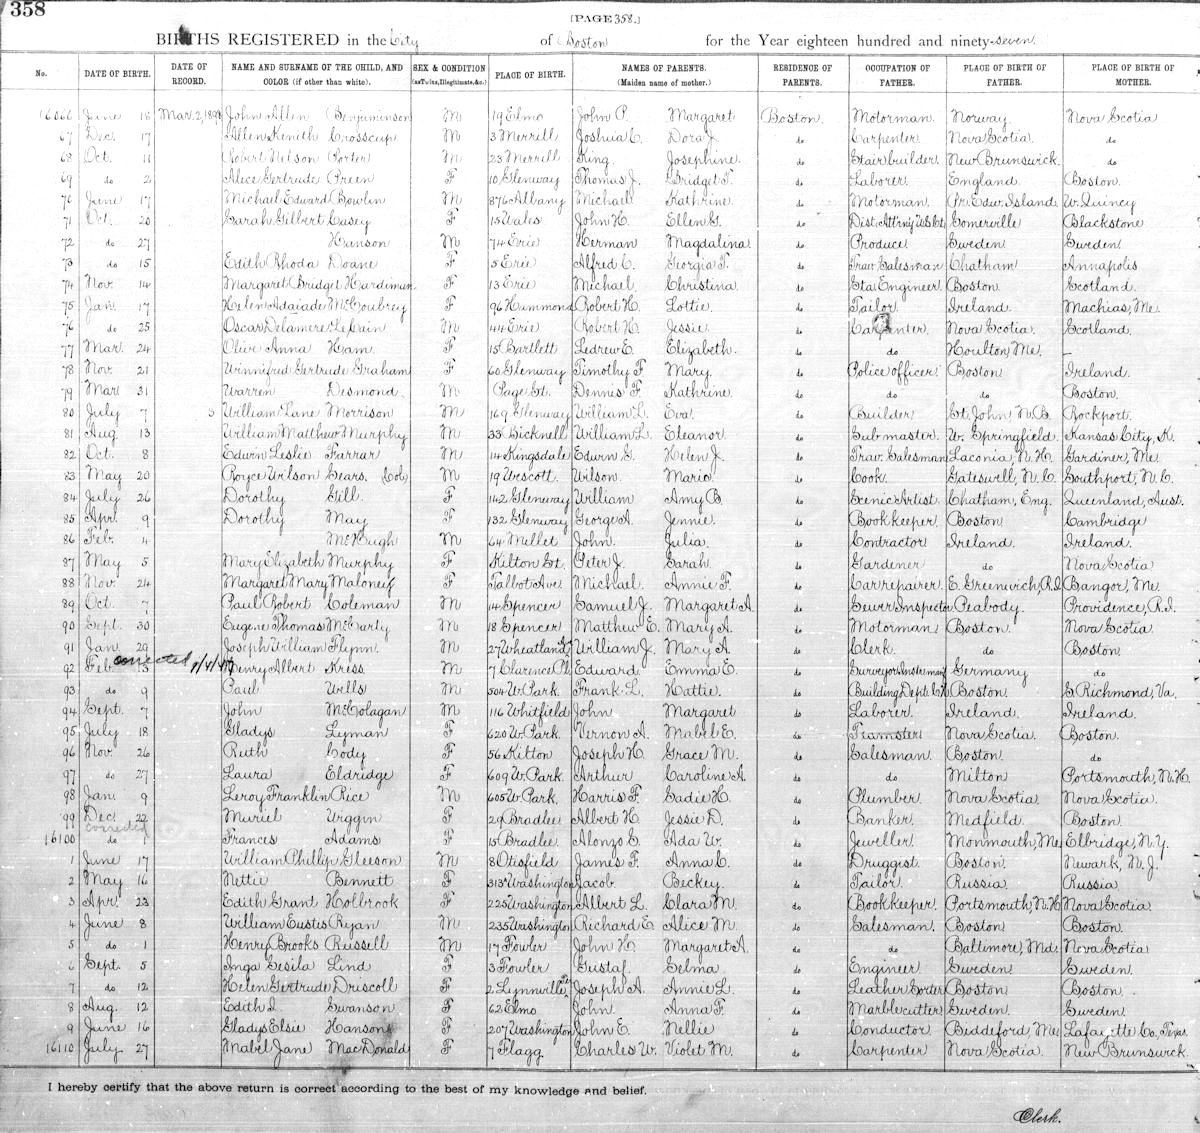 358
[PAGE 358.]
BIRTHS REGISTERED in the City of Boston for the Year eighteen hundred and ninety-seven.
No. DATE OF BIRTH. DATE OF RECORD. NAME AND SURNAME OF THE CHILD, AND COLOR (if other than white). SEX & CONDITION (as Twins, Illegitimate, &c.) PLACE OF BIRTH. NAMES OF PARENTS. (Maiden name of mother.) RESIDENCE OF PARENTS. OCCUPATION OF FATHER. PLACE OF BIRTH OF FATHER. PLACE OF BIRTH OF MOTHER.
16066 June 18 Mar. 2, 1898 John Allen Benjaminson M 19 Elmo John P. Margaret Boston. Motorman. Norway. Nova Scotia
67 Dec. 17 Allen Kenith Crosscup M 3 Merrill Joshua C. Dora J. do Carpenter. Nova Scotia. do
68 Oct. 11 Robert Nelson Porter M 23 Merrill King. Josephine. do Stair builder. New Brunswick. do
69 do 2 Alice Gertrude Preen F 10 Glenway Thomas J. Bridget T. do Laborer. England. Boston.
70 June 17 Michael Edward Bowlin M 876 Albany Michael Kathrine. do Motorman. Pr. Edw. Island. W. Quincy
71 Oct. 20 Sarah Gilbert Casey F 15 Wales John H. Ellen G. do Dist. Att'rny U.S. Ct. Somerville Blackstone
72 do 27 Hanson M 74 Erie Herman Magdalina do Produce Sweden Sweden
73 do 15 Edith Rhoda Doane F 5 Erie Alfred C. Georgia T. do Trav. Salesman Chatham Annapolis
74 Nov. 14 Margaret Bridget Hardiman F 13 Erie Michael Christina. do Sta. Engineer Boston Scotland.
75 Jan. 17 Helen Adaiade McCoubrey F 96 Hammond Robert H. Lottie. do Tailor Ireland. Machias, Me.
76 do 25 Oscar Delamere LePain M 44 Erie Robert H. Jessie. do Carpenter. Nova Scotia. Scotland.
77 Mar. 24 Olive Anna Ham. F 15 Bartlett Ledrew E. Elizabeth. do do Houlton, Me. –
78 Nov. 21 Winnifred Gertrude Graham F 60 Glenway Timothy F. Mary. do Police officer. Boston Ireland.
79 Mar. 31 Warren Desmond. M Page St. Dennis F. Kathrine. do do do Boston.
80 July 7 3 William Lane Morrison M 169 Glenway William L. Eva. do Builder St. John N.B. Rockport.
81 Aug. 13 William Matthew Murphy M 33 Bicknell William L. Eleanor. do Submaster. W. Springfield. Kansas City, K.
82 Oct. 8 Edwin Leslie Farrar M 14 Kingsdale Edwin G. Helen J. do Trav. Salesman Laconia, N.H. Gardiner, Me.
83 May 20 Royce Wilson Sears. (Col) M 19 Wescott. Wilson. Maria. do Cook. Gateswell, N.C. Southport, N.C.
84 July 26 Dorothy Gill. F 142 Glenway William Amy B. do Scenic Artist. Chatham, Eng. Queenland, Aust.
85 Apr. 9 Dorothy May F 132 Glenway George A. Jennie. do Bookkeeper. Boston Cambridge
86 Feb. 4 McHugh M 64 Millet John. Julia. do Contractor Ireland. Ireland.
87 May 5 Mary Elizabeth Murphy F Kilton St. Peter J. Sarah. do Gardener do Nova Scotia
88 Nov. 24 Margaret Mary Maloney F Talbot Ave. Michael. Annie F. do Car repairer. E. Greenwich, R.I. Bangor, Me.
89 Oct. 7 Paul Robert Coleman M 14 Spencer Samuel J. Margaret A. do Sewer Inspector Peabody. Providence, R.I.
90 Sept. 30 Eugene Thomas McCarty M 18 Spencer Matthew E. Mary A. do Motorman Boston. Nova Scotia.
91 Jan. 29 Joseph William Flynn. M 27 Wheatland William J. Mary A. do Clerk. do Boston.
corrected
92 Feb. Henry Albert Kress M 7 Clarence Pl. Edward Emma E. do Surveyors Instrum'ts Germany do
93 do 9 Paul Wells M 504 W. Park. Frank L. Hattie. do Building Dept. Boston. S. Richmond, Va.
94 Sept. 7 John McColagan M 116 Whitfield John Margaret do Laborer. Ireland. Ireland.
95 July 18 Gladys Lyman F 620 W. Park. Vernon A. Mabel E. do Teamster Nova Scotia. Boston.
96 Nov. 26 Ruth Cody F 56 Kilton Joseph H. Grace M. do Salesman Boston. do
97 do 27 Laura Eldridge F 609 W. Park. Arthur Caroline A. do do Milton Portsmouth, N.H.
98 Jan. 9 Leroy Franklin Rice M 605 W. Park. Harris F. Sadie H. do Plumber. Nova Scotia. Nova Scotia.
99 Dec. 22 Muriel Urggin F 29 Bradlee Albert H. Jessie D. do Banker. Medfield. Boston.
corrected
16100 do 1 Frances Adams F 15 Bradlee. Alonzo E. Ada W. do Jeweller Monmouth, Me Elbridge, N.Y.
1 June 17 William Phillip Gleeson M 8 Otisfield James F. Anna C. do Druggist Boston. Newark, N.J.
2 May 16 Nettie Bennett F 313 Washington Jacob Beckey. do Tailor. Russia Russia.
3 Apr. 23 Edith Grant Holbrook F 225 Washington Albert L. Clara M. do Bookkeeper. Portsmouth, N.H. Nova Scotia.
4 June 8 William Eustis Ryan M 235 Washington Richard E. Alice M. do Salesman. Boston Boston.
5 do 1 Henry Brooks Russell M 17 Fowler John H. Margaret A. do do Baltimore, Md. Nova Scotia
6 Sept. 5 Inga Cesila Lind F 3 Fowler Gustaf. Selma. do Engineer Sweden Sweden.
7 do 12 Helen Gertrude Driscoll F 2 Lynnville Joseph A. Annie L. do Leather Sorter Boston. Boston.
8 Aug. 12 Edith I. Swanson F 62 Elmo John. Anna F. do Marblecutter Sweden. Sweden.
9 June 16 Gladys Elsie Hanson F 207 Washington John E. Nellie do Conductor Biddeford, Me. Lafayette Co., Texas.
16110 July 27 Mabel Jane MacDonald F 7 Flagg Charles W. Violet M. do Carpenter Nova Scotia. New Brunswick.
I hereby certify that the above return is correct according to the best of my knowledge and belief.
Clerk.